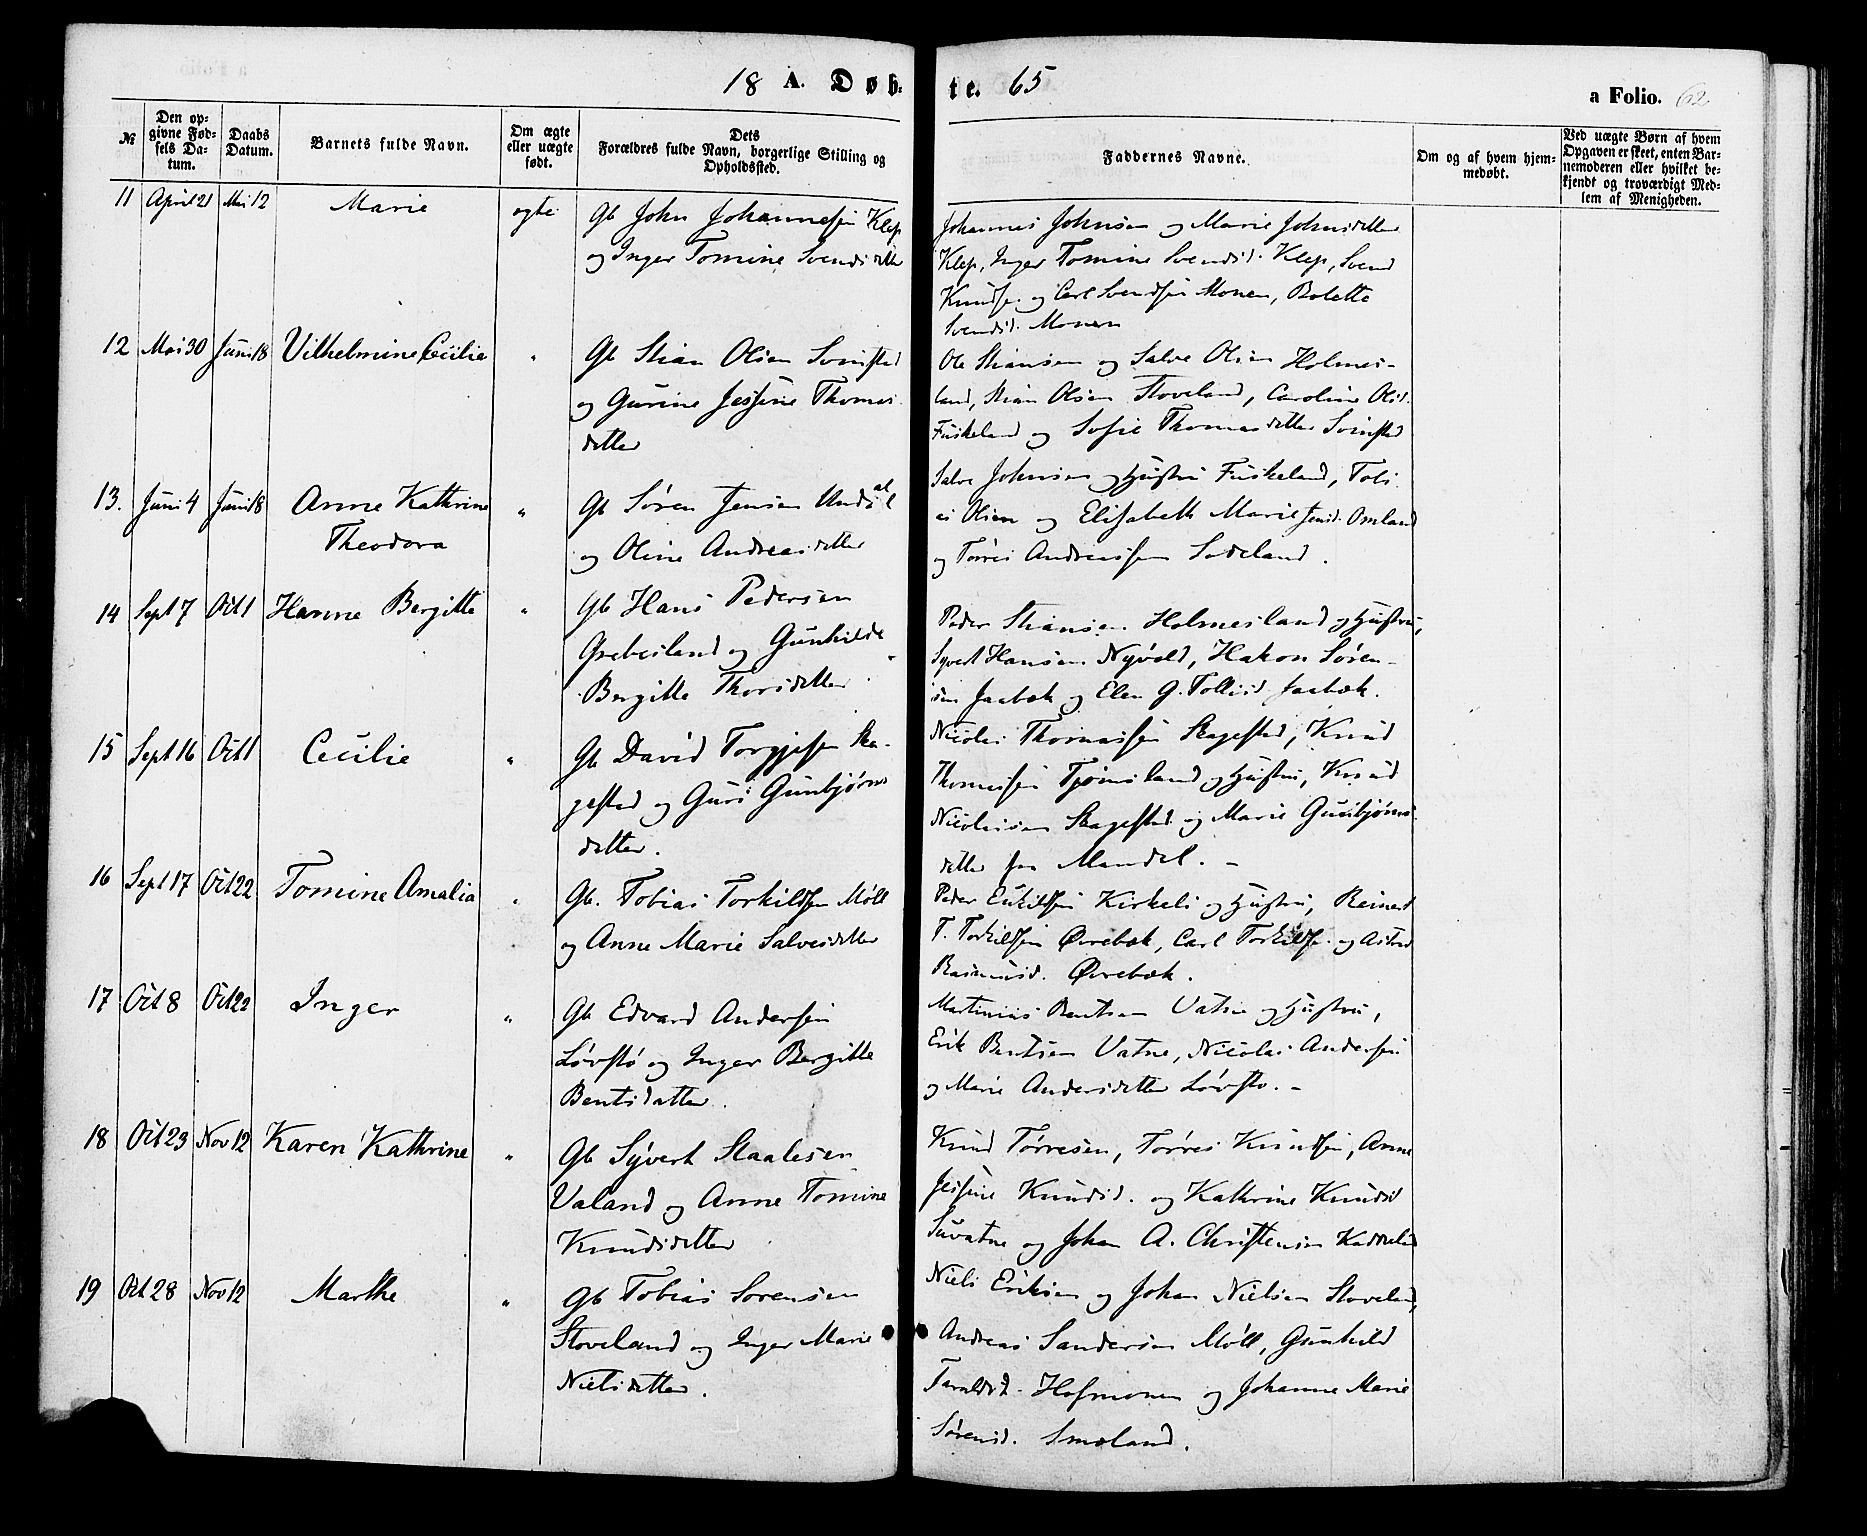 18 A. Døb- te. 65
a Folio. 62
№
Den op-
givne Fød-
sels Da-
tum.
Daabs
Datum.
Barnets fulde Navn.
Om ægte
eller uægte
født.
Dets
Forældres fulde Navn, borgerlige Stilling og
Opholdssted.
Faddernes Navne.
Om og af hvem hjem-
medøbt.
Ved uægte Børn af hvem
Opgaven er skeet, enten Bar-
nemoderen eller hvilket be-
kjendt og troværdigt Med-
lem af Menigheden.
11 April 21 Mai 12 Marie ægte Gb John Johannesen Klep
og Inger Tomine Svendsdetter
Johannes Johnsen og Marie Johnsdetter
Klep, Inger Tomine Svendsd. Klep, Svend
Knuds. og Carl Svendsen Monen, Bolette
Svendsd. Monen
12 Mai 30 Juni 18 Vilhelmine Cecilie " Gb Stian Olsen
og Gurine Jessine Thomas
detter
Ole Stiansen og Salve Olsen Holmes-
land, Stian Olsen Stoveland, Caroline Olsd.
Fuskeland og Sofie Thomasdetter
13. Juni 4 Juni 18 Anne Kathrine
Theodora
" Gb Søren Jensen Undal
og Oline Andreasdetter
Salve Johnsen og Hustru Fuskeland, Tobi
as Olsen og Elisabeth Marie Jensd. Omland
og Tørres Andreassen Sodeland.
14 Sept 7 Oct 1 Hanne Bergitte " Gb Hans Pedersen
Grebesland og Gunhilde
Bergitte Thorsdetter.
Peder Stiansen Holmesland og Hustru,
Syvert Hansen Nyvold, Hakon Søren-
sen Jaabæk og Elen G. Tollisd Jaabæk.
15 Sept 16 Oct 1 Cecilie " Gb David Torgjesen Ska-
gestad og Guri Gunbjørns
detter.
Nicolai Thomassen Skagestad, Knud
Thomassen Tjomsland og Hustru, Knud
Nicolaisen Skagestad og Marie Gunbjørns
detter fra Mandal. -
16 Sept 17 Oct 22 Tomine Amalia " Gb. Tobias Torkildsen Møll
og Anne Marie Salvesdetter
Peder Eskildsen Kirkeli og Hustru, Reinert
T. Torkildsen Øvrebøk, Carl Torkilds. og
Rasmusd. Øvrebøk.
17 Oct 8 Oct 22 Inger " Gb Edvard Andersen
Løvstø og Inger Bergitte
Bentsdatter.
Martinius Bentsen Vatne og Hustru,
Erik Bentsen Vatne, Nicolai Andersen
og Marie Andersdetter Løvstø. -
18 Oct 23 Nov 12 Karen Kathrine " Gb Syvert Staalesen
Valand og Anne Tomine
Knudsdetter
Knud Tørresen, Tørres Knudsen, Anne
Jessine Knudsd. og Kathrine Knudsd
og Johan A. Christensen
19 Oct 28 Nov 12 Marthe " Gb Tobias Sørensen
Stoveland og Inger Marie
Nielsdetter.
Niels Eriksen og Johan Nielsen Stoveland,
Andreas Sandersen Møll, Gunhild
Taraldsd. Hofmonen og Johanne Marie
Sørensd. Smoland.